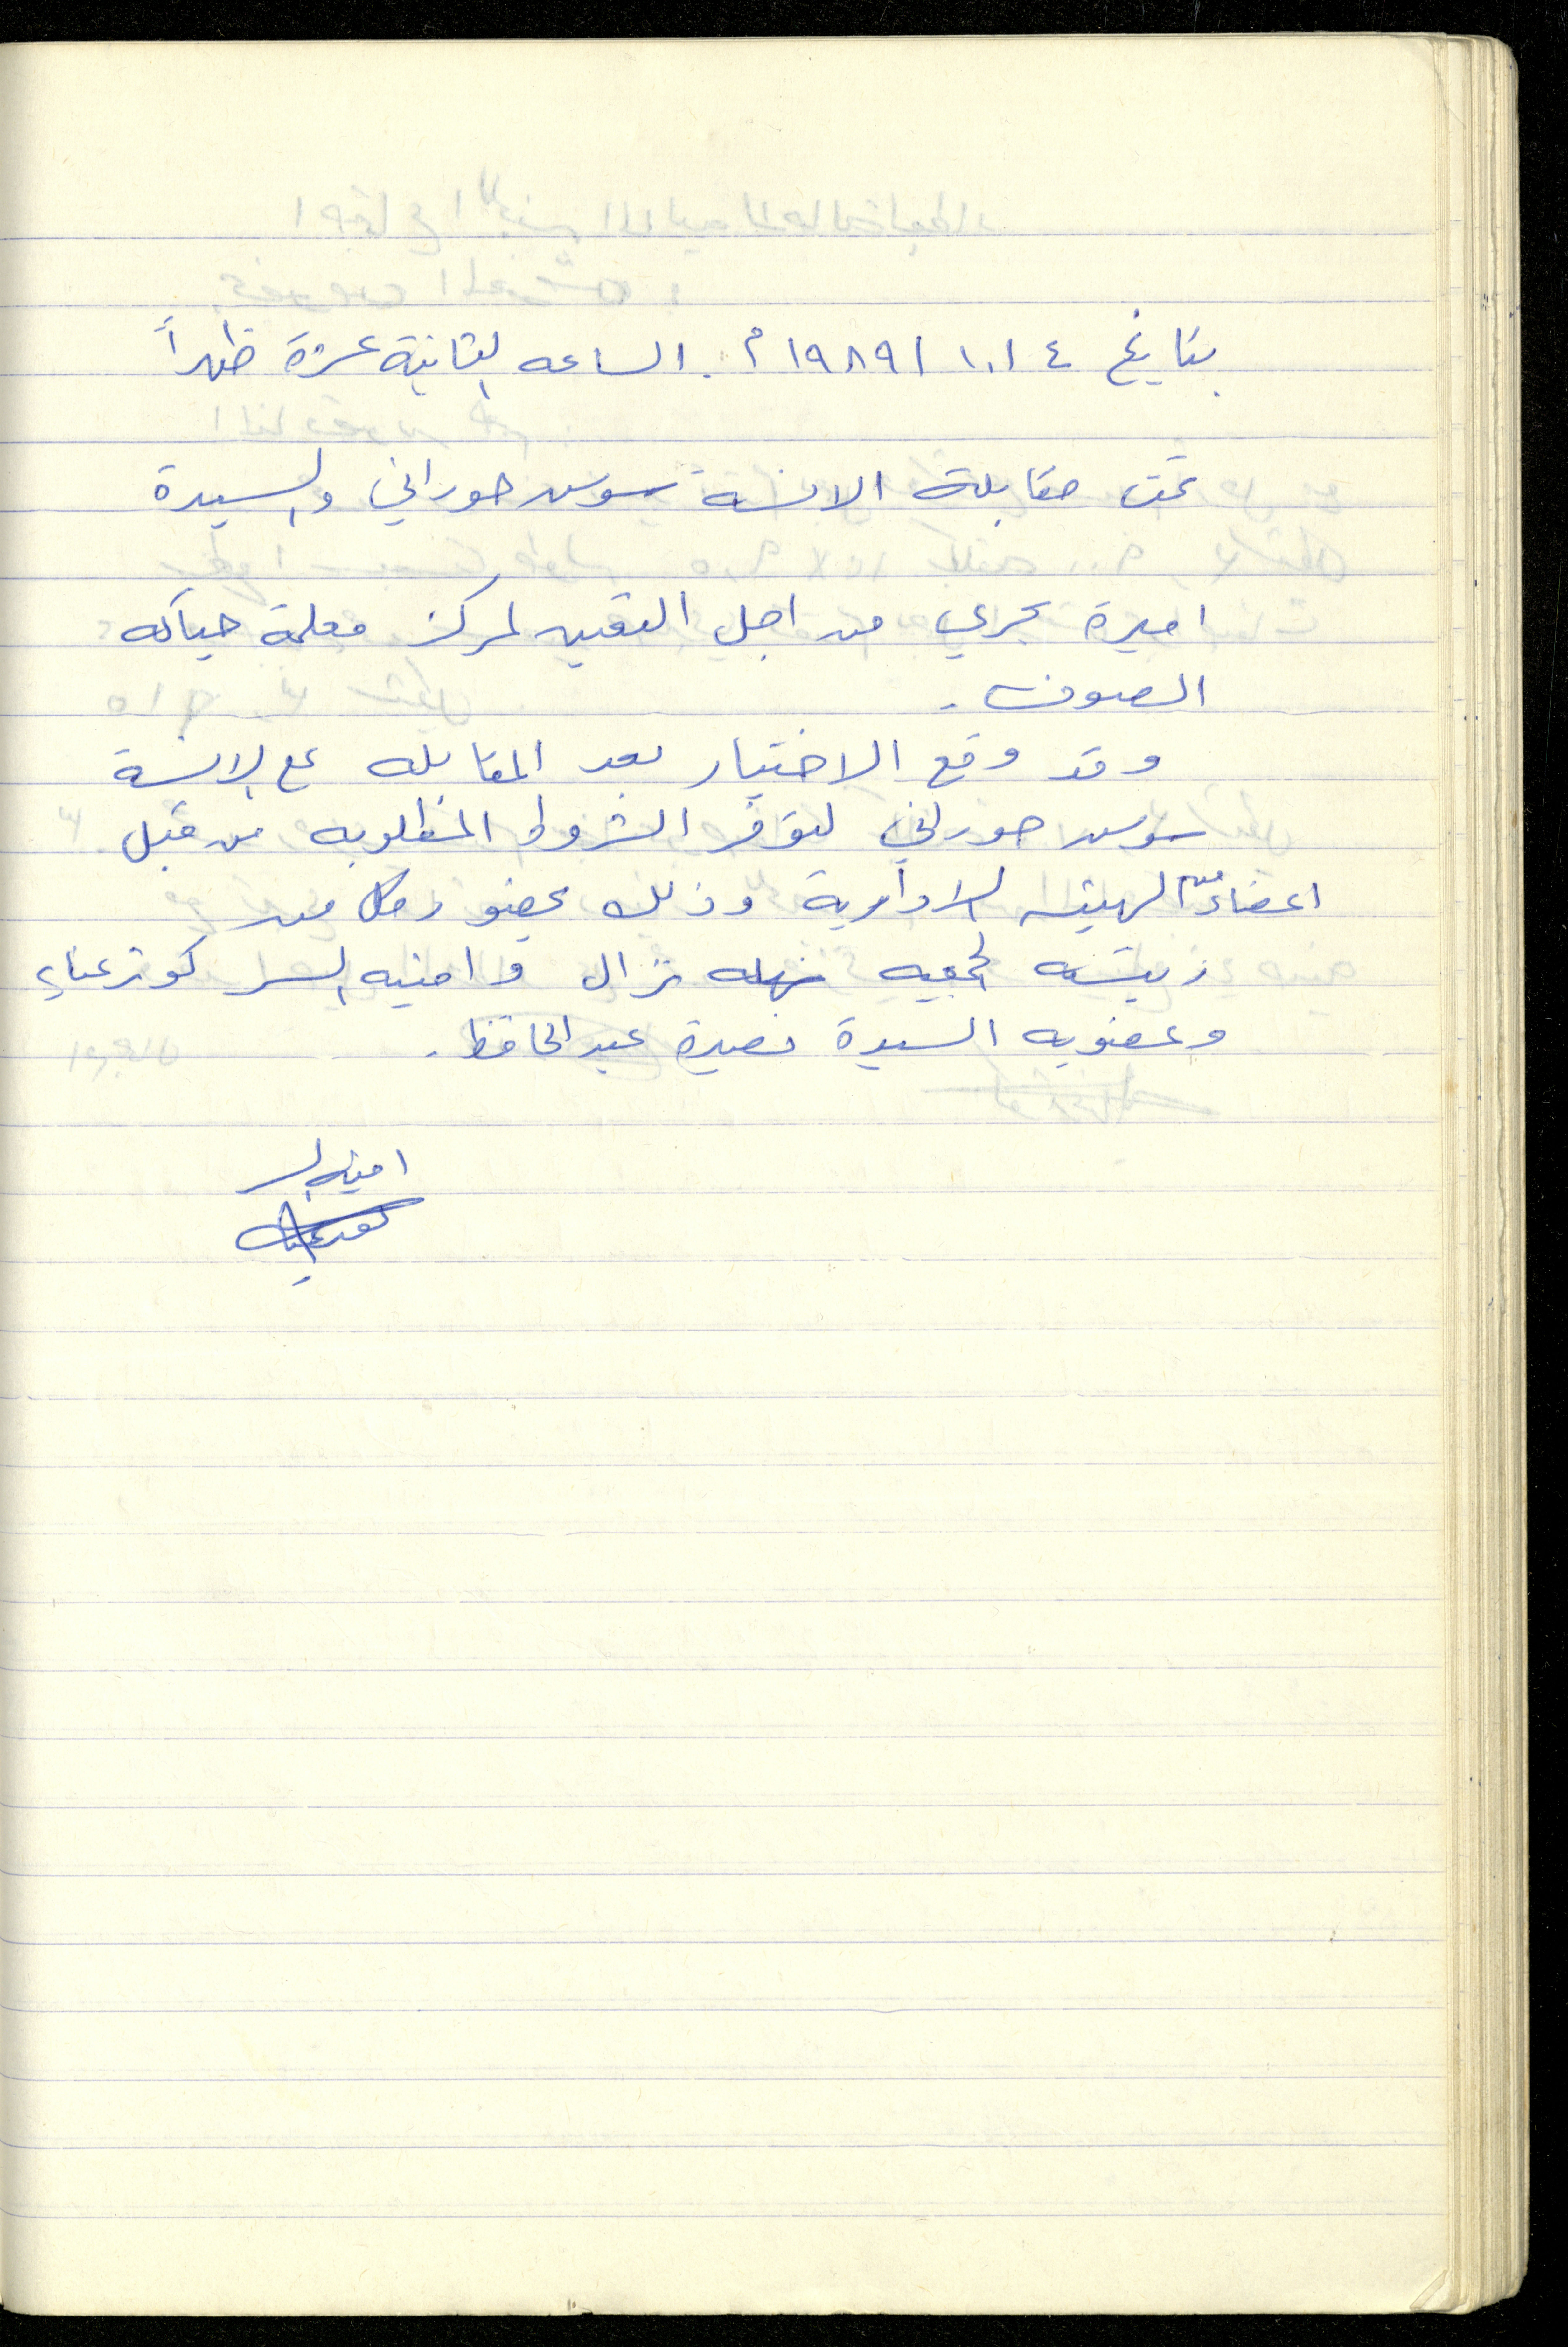 بتاريخ ٤ / ١٠ / ١٩٨٩ م . الساعه الثانية عشرة ظهراً
تمت مقابلة الانسة سوسن حوراني والسيدة
اميرة بحري من اجل التعيين لمركز معلمة حياكه
الصوف .
وقد وقع الاختيار بعد المقابله مع الانسة
سوسن حوراني لتوفر الشروط المطلوبه من قبل
اعضاء من الهيئه الادارية وذلك بحضور كل من
رئيسه الجمعيه نهله نزال وامينه السر كوثر عناية
وعضويه السيدة نصيرة عبد الحافظ .
امينه السر